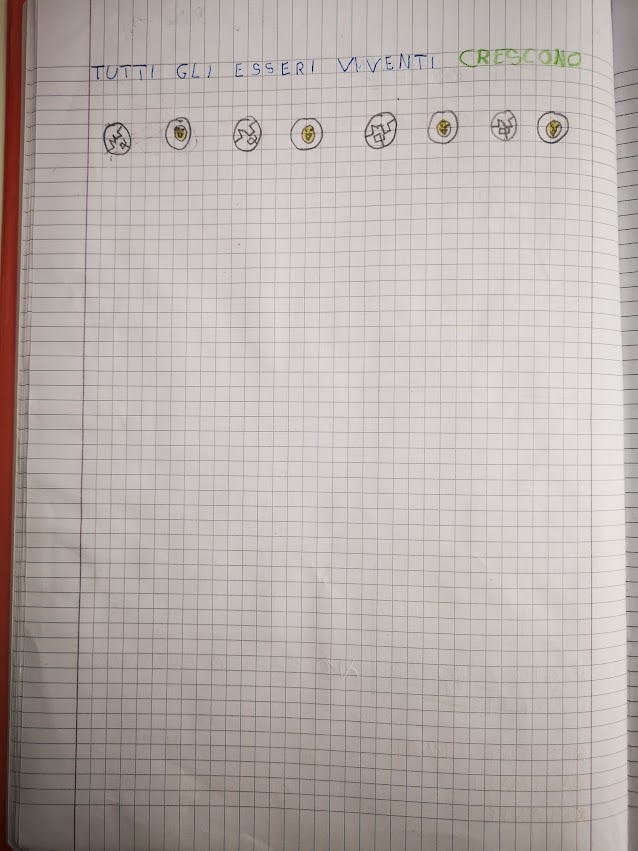 TUTTI GLI ESSERI VIVENTI CRESCONO